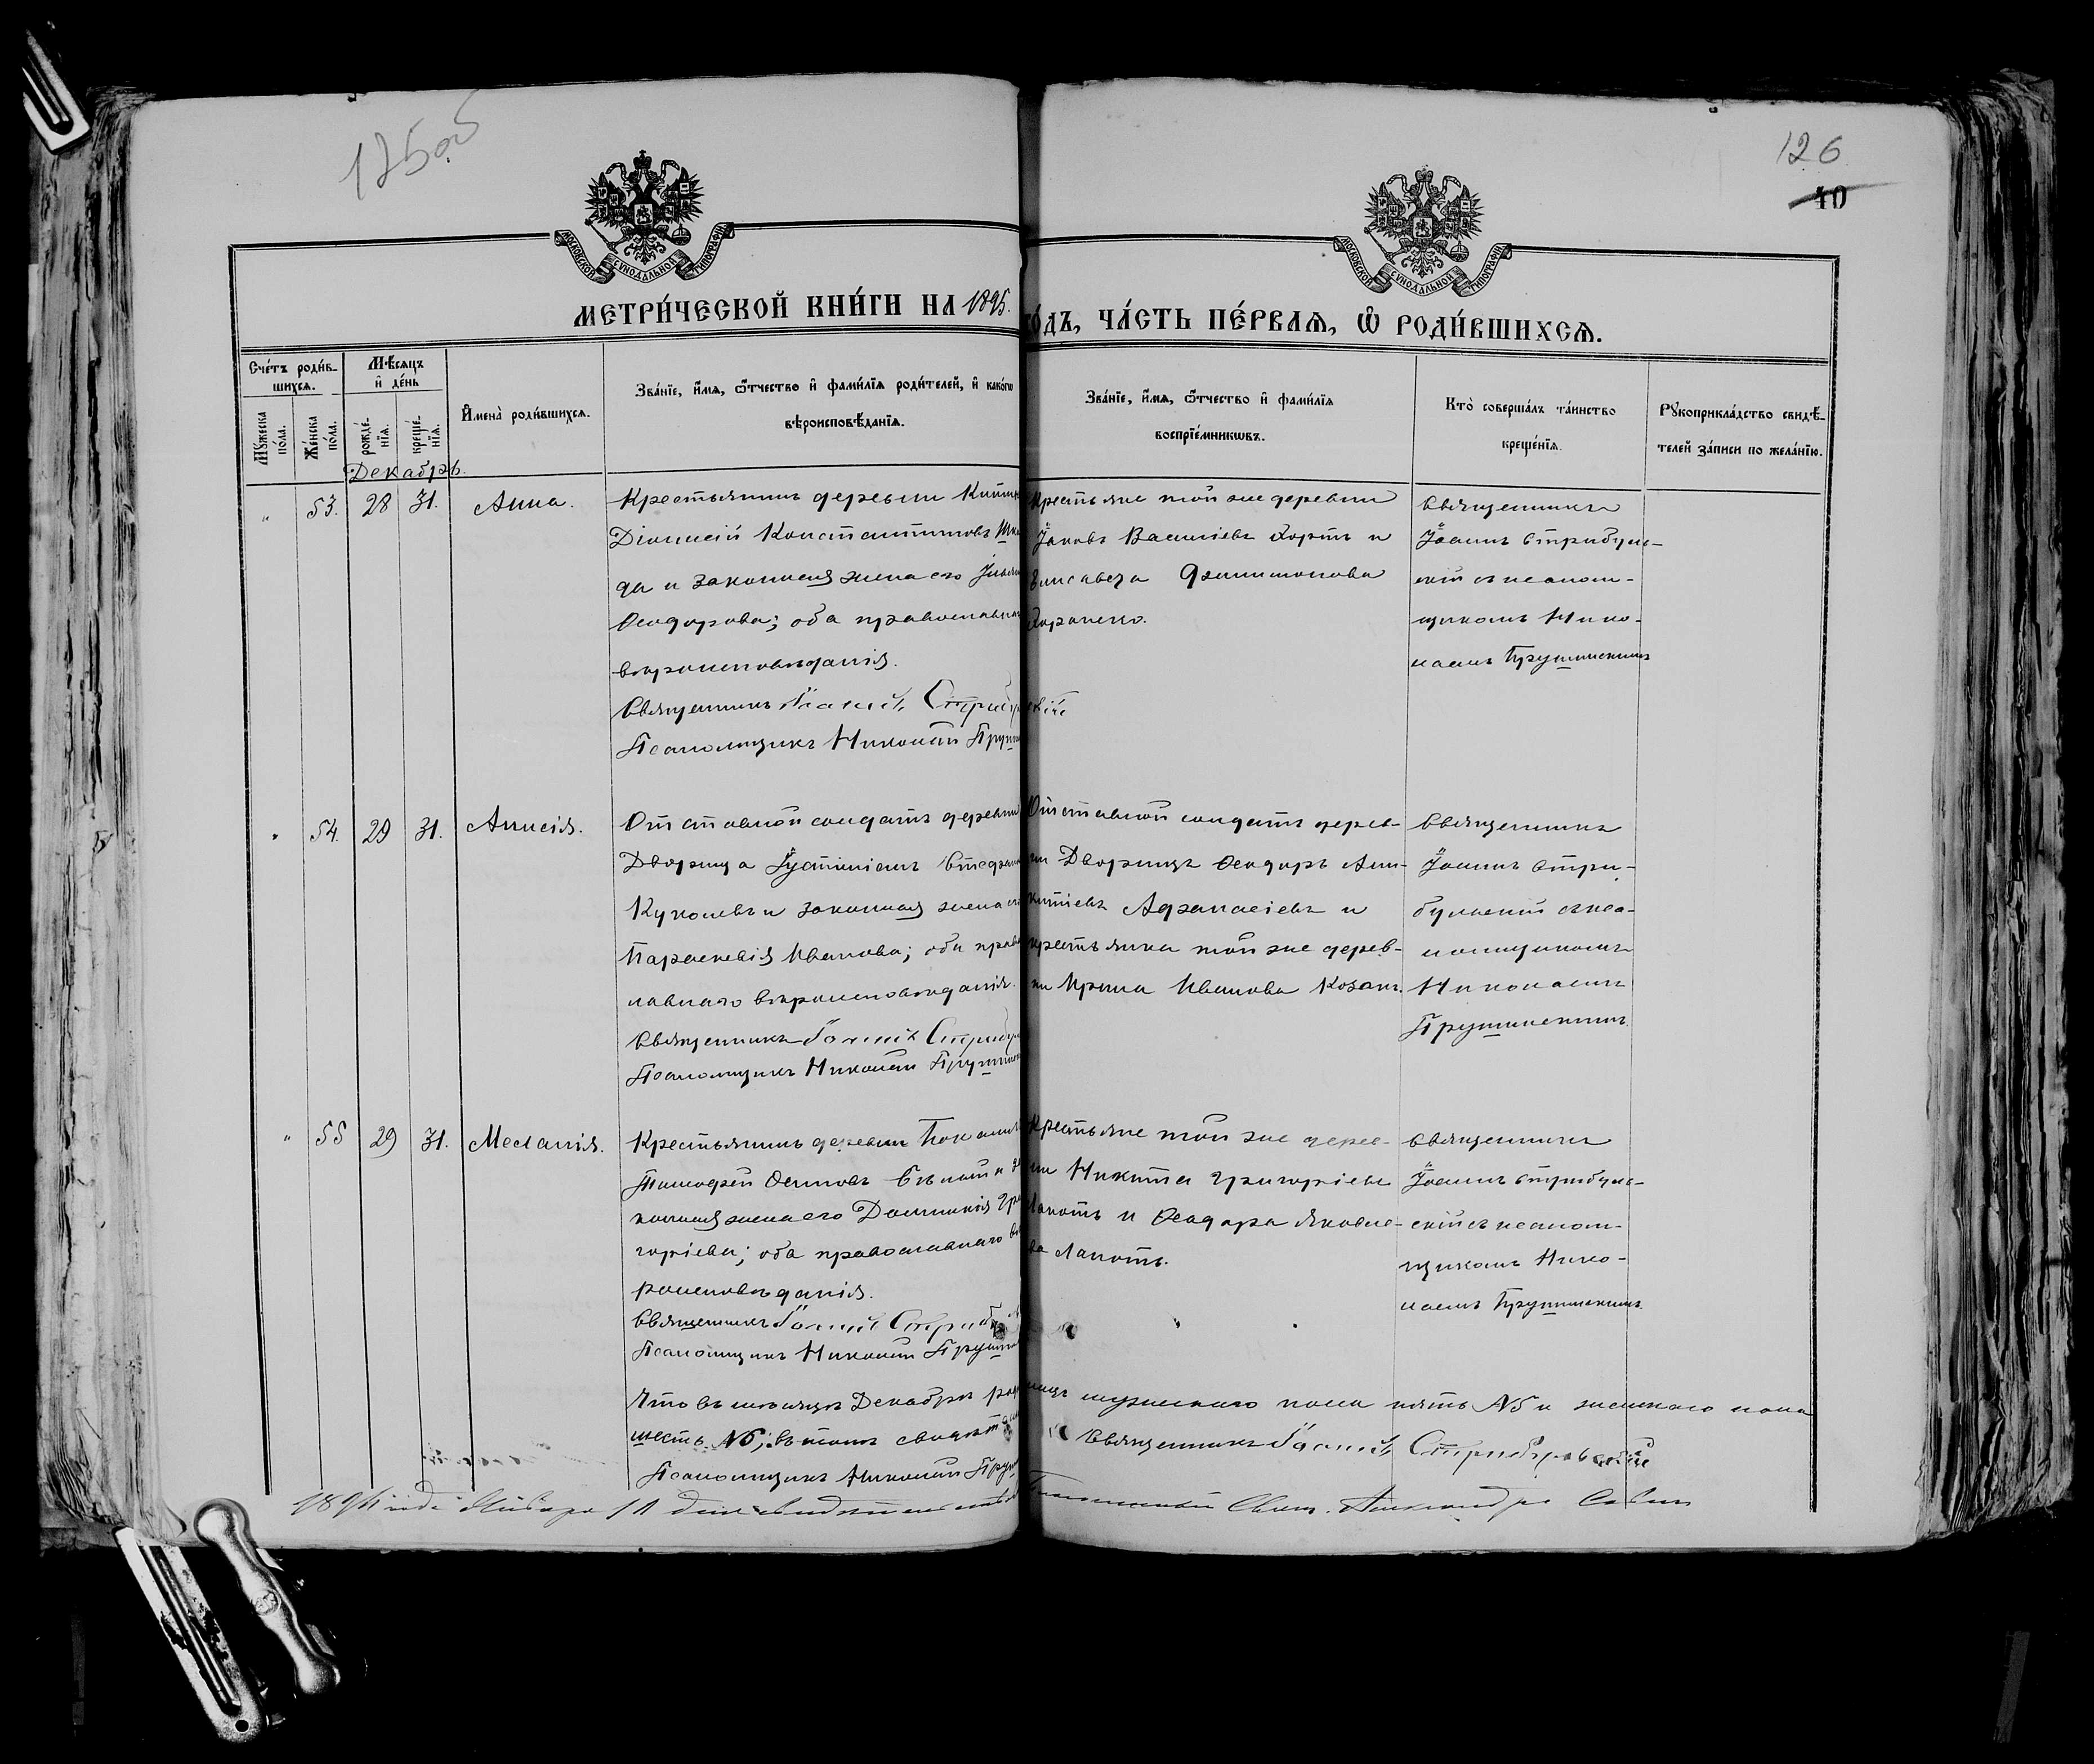 125об
126
40
МОСКОВСКОЙ СѴНОДАЛЬНОЙ ТИПОГРАФІИ
МОСКОВСКОЙ СѴНОДАЛЬНОЙ ТИПОГРАФІИ
МЕТРИ́ЧЕСКОЙ КНИ́ГИ НА 1895.
ГО́ДЪ, ЧА́СТЬ ПЕ́РВАѦ, Ѡ҆ РОДИ́ВШИХСѦ.
Сче́тъ роди́вшихсѧ.
Мꙋ́жеска по́ла.
Же́нска по́ла.
Мѣ́сѧцъ и҆ де́нь
рожде́нїѧ.
креще́нїѧ.
И҆мена̀ роди́вшихсѧ.
Зва́нїе, и҆́мѧ, ѻ҆́тчество и҆ фами́лїѧ роди́телей, и҆ како́гѡ
вѣроисповѣ́данїѧ.
Зва́нїе, и҆́мѧ, ѻ҆́тчество и҆ фами́лїѧ
воспрїе́мникѡвъ.
Кто̀ соверша́лъ та́инство
креще́нїѧ.
Рꙋкоприкла́дство свидѣ́-
телей за́писи по жела́нїю.
Декабрь.
" 53. 28 31. Анна.
Крестьянинъ деревни
Діонисій Константиновъ
да и законная жена его
Ѳеодорова; оба православнаго
вѣроисповѣданія.
Священникъ Іоаннъ
Псаломщикъ Николай
Крестьяне той же деревни
Іаковъ Василіевъ Хортъ и
Елисавета Филимонова
Священникъ
Іоаннъ Стрибуль-
скій съ псалом-
щикомъ Нико-
лаемъ Грушинскимъ
" 54. 29 31. Анисія.
Отставной солдатъ деревни
Дворища Іустиніанъ
и законная жена его
Параскевія Иванова; оба право-
лавнаго вѣроисповѣданія.
Священникъ Іоаннъ
Псаломщикъ Николай
Отставной солдатъ дерев-
ни Дворищъ Ѳеодоръ Ани-
китіевъ Аѳанасіевъ и
крестьянка той же дерев-
ни Ирина Иванова Козакъ.
Священникъ
Іоаннъ Стри-
бульскій съ пса-
ломщикомъ
Николаемъ
" 55 29 31. Меланія.
Крестьянинъ деревни
Тимоѳей Осиповъ
конная жена его Домникія Гри-
горіева; оба православнаго вѣ-
роисповѣданія.
Священникъ Іоаннъ
Псаломщикъ Николай
Крестьяне той же дерев-
ни Никита Григоріевъ
Лапоть и Ѳеодора Яковле-
ва Лапоть.
Священникъ
Іоаннъ Стрибуль-
скій съ псалом-
щикомъ Нико-
лаемъ
Что въ мѣсяцѣ Декабрѣ
мужескаго пола пять №5 и женскаго пола
шесть №6; въ томъ
Священникъ Іоаннъ
Псаломщикъ Николай